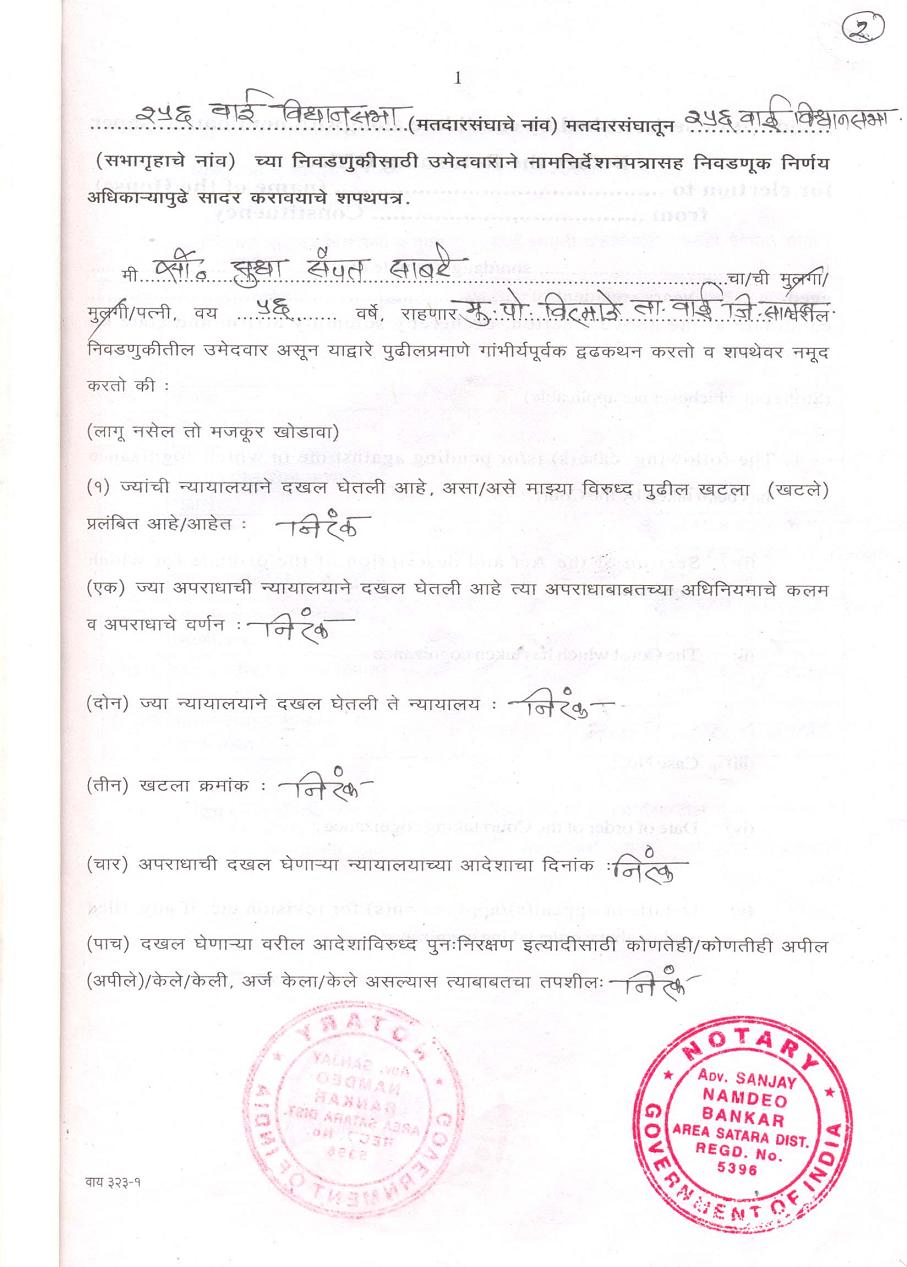 २
1
२५६ वाई विधानसभा (मतदारसंघाचे नांव) मतदारसंघातून २५६ वाई विधानसभा.
(सभागृहाचे नांव) च्या निवडणुकीसाठी उमेदवाराने नामनिर्देशनपत्रासह निवडणूक निर्णय
अधिकाऱ्यापुढे सादर करावयाचे शपथपत्र.
मी सौ. सुधा संपत साबरे चा/ची मुलगा/
मुलगी/पत्नी, वय ५६ वर्षे, राहणार मु. पो. ता. वाई जि. सातारा वरील
निवडणुकीतील उमेदवार असून याद्वारे पुढीलप्रमाणे गांभीर्यपूर्वक द्वढकथन करतो व शपथेवर नमूद
करतो की :
(लागू नसेल तो मजकूर खोडावा)
(१) ज्यांची न्यायालयाने दखल घेतली आहे, असा/असे माझ्या विरुध्द पुढील खटला (खटले)
प्रलंबित आहे/आहेत : निरंक
(एक) ज्या अपराधाची न्यायालयाने दखल घेतली आहे त्या अपराधाबाबतच्या अधिनियमाचे कलम
व अपराधाचे वर्णन : निरंक
(दोन) ज्या न्यायालयाने दखल घेतली ते न्यायालय : निरंक
(तीन) खटला क्रमांक : निरंक
(चार) अपराधाची दखल घेणाऱ्या न्यायालयाच्या आदेशाचा दिनांक : निरंक
(पाच) दखल घेणाऱ्या वरील आदेशांविरुध्द पुनःनिरक्षण इत्यादीसाठी कोणतेही/कोणतीही अपील
(अपीले)/केले/केली, अर्ज केला/केले असल्यास त्याबाबतचा तपशीलः निरंक
NOTARY
ADV. SANJAY
NAMDEO
BANKAR
AREA SATARA DIST.
REGD. No.
5396
GOVERNMENT OF INDIA
वाय ३२३-१